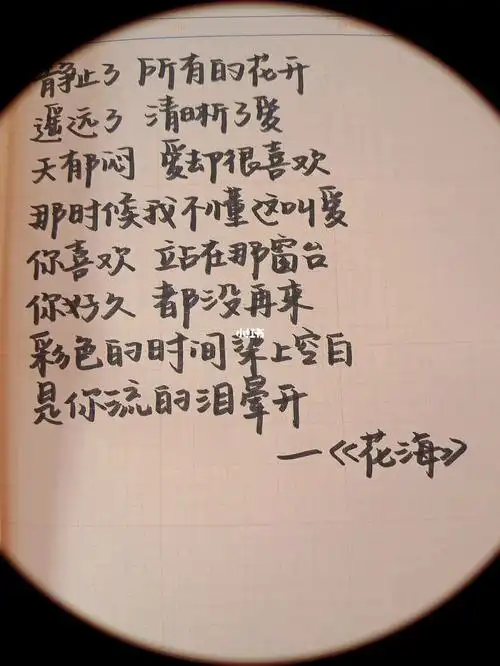 静止了 所有的花开
遥远了 清晰了爱
天郁闷 爱却很喜欢
那时候我不懂这叫爱
你喜欢 站在那窗台
你好久 都没再来
彩色的时间染上空白
是你流的泪晕开
小红书
—《花海》